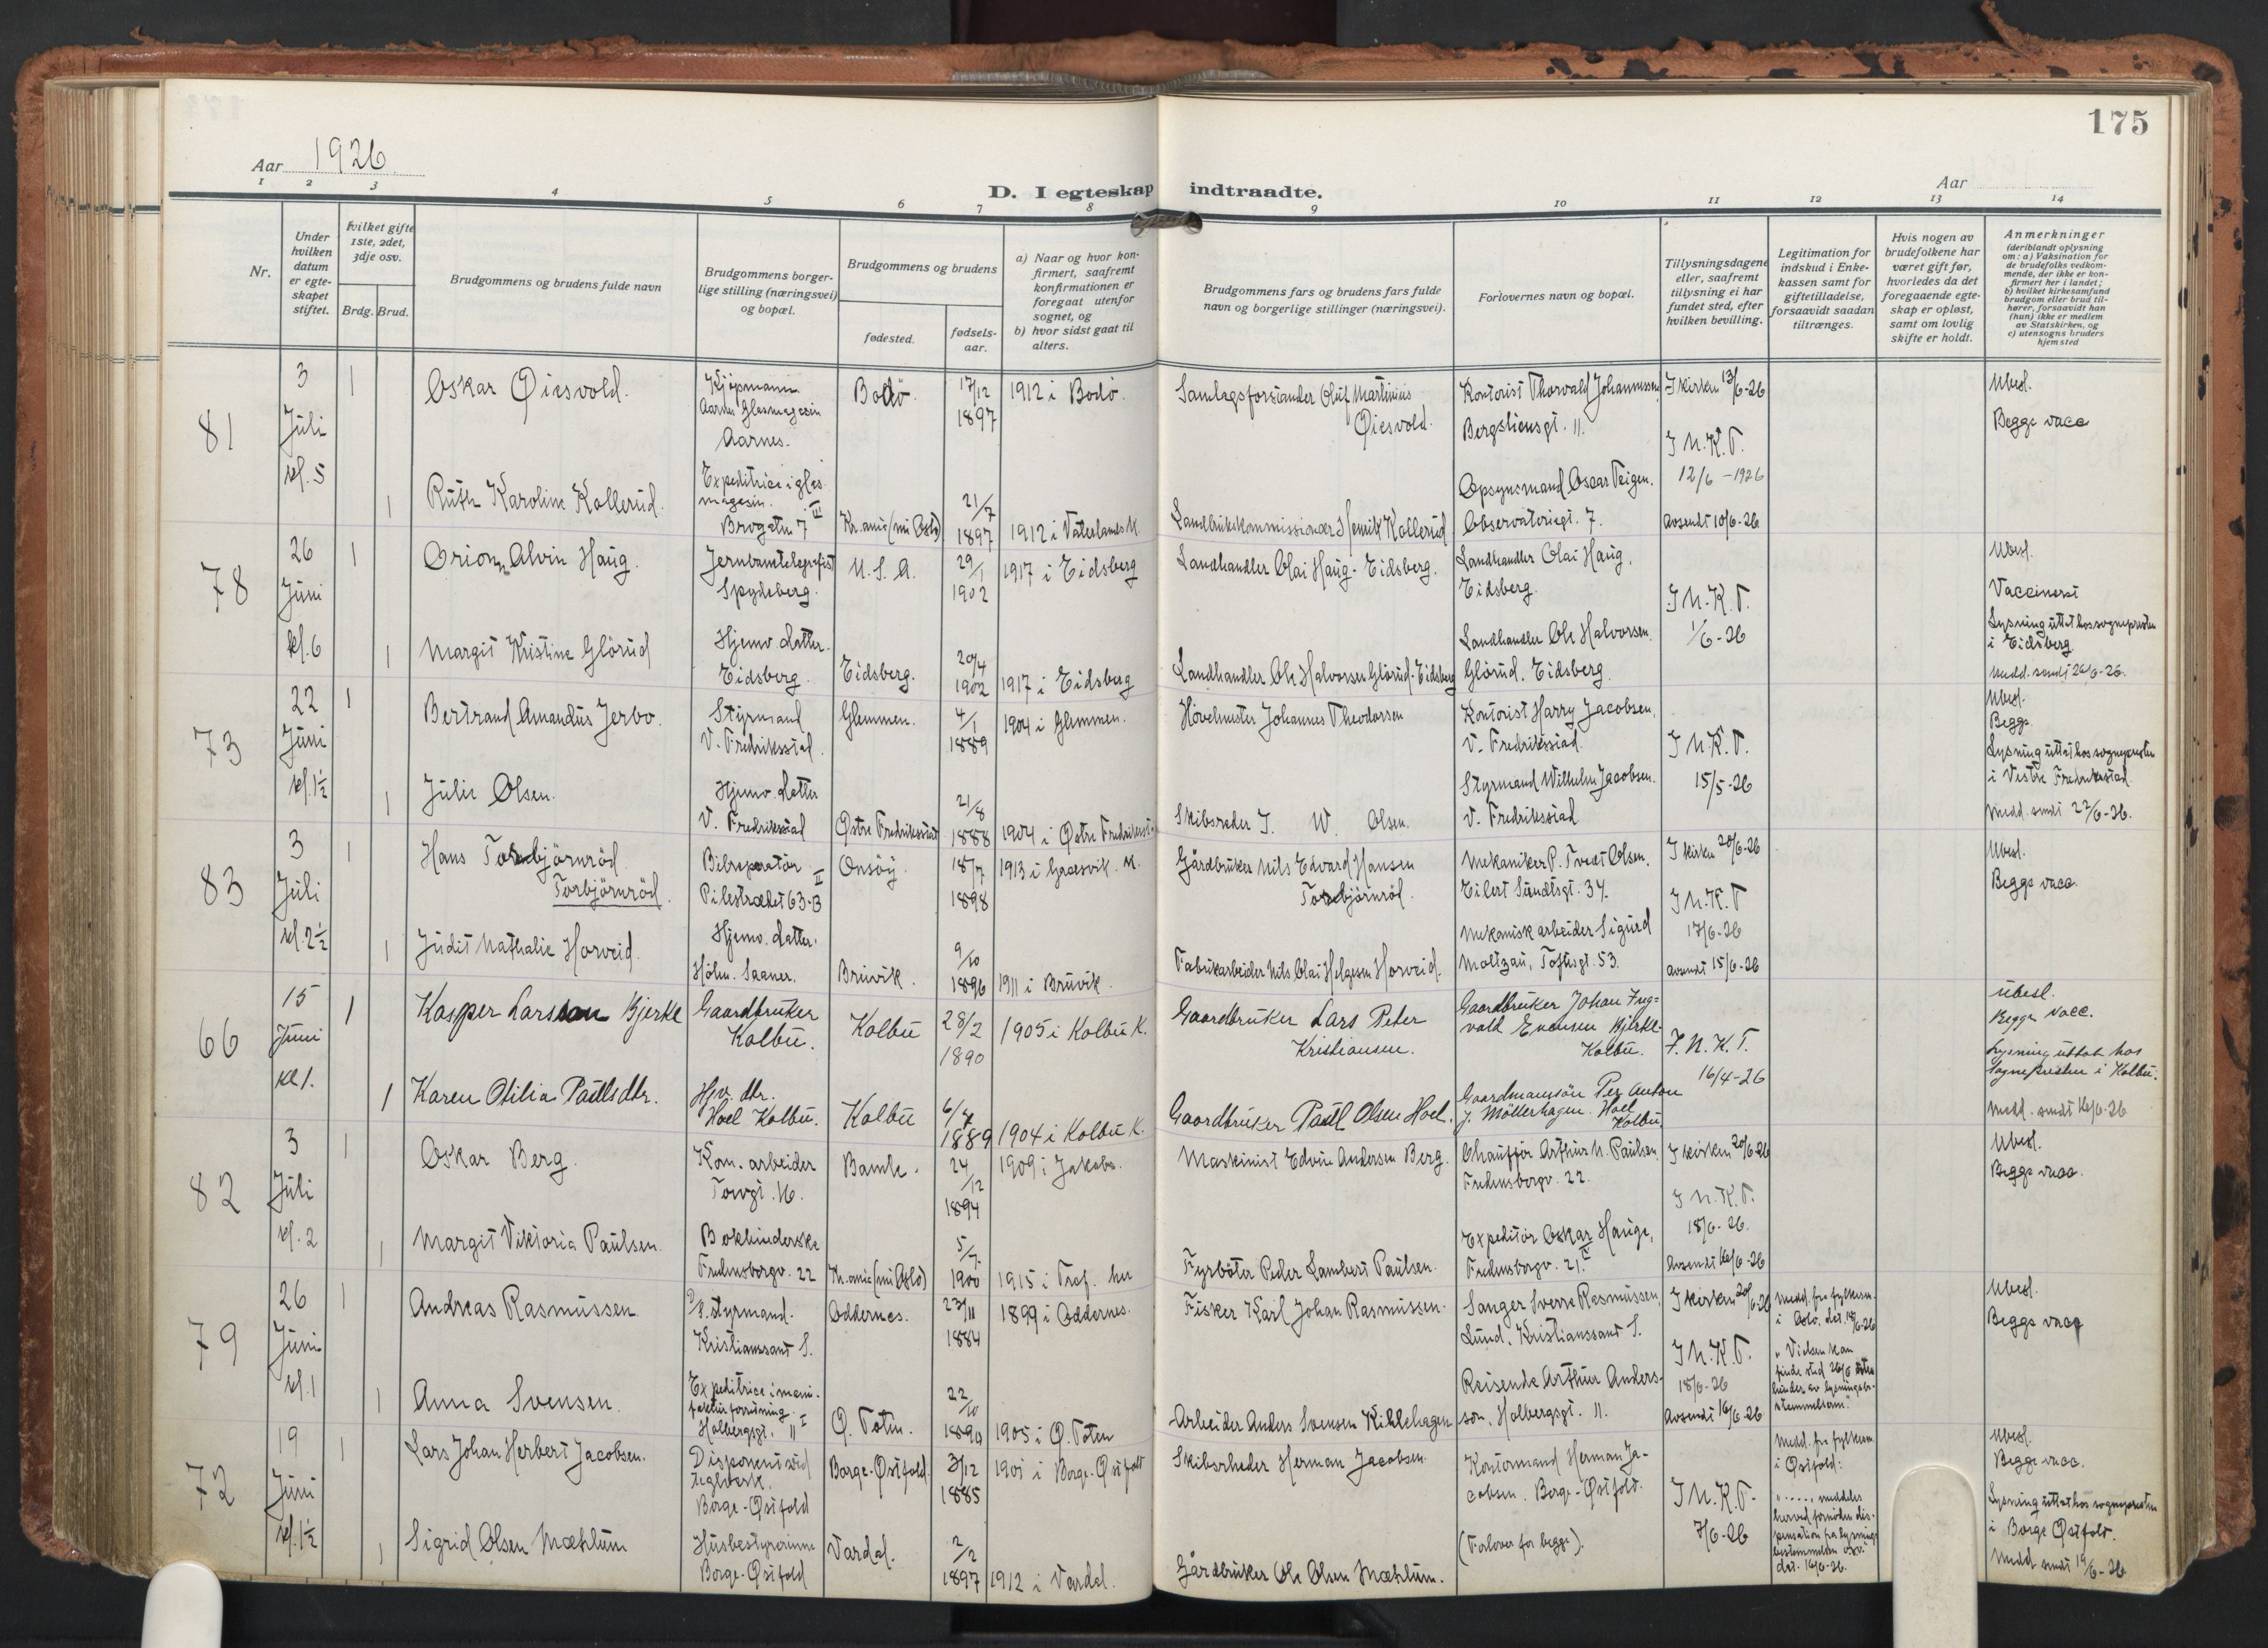 175
Aar 1926.
D. I egteskap indtraadte.
Aar
1 2 3 4 5 6 7 8 9 10 11 12 13 14
Nr.
Under hvilken datum er egteskapet stiftet.
hvilket gifte 1ste, 2det, 3dje osv.
Brdg. Brud.
Brudgommens og brudens fulde navn
Brudgommens borgerlige stilling (næringsvei) og bopæl.
Brudgommens og brudens
fødested.
fødselsaar.
a) Naar og hvor konfirmert, saafremt konfirmationen er foregaat utenfor sognet, og
b) hvor sidst gaat til alters.
Brudgommens fars og brudens fars fulde navn og borgerlige stillinger (næringsvei).
Forlovernes navn og bopæl.
Tillysningsdagene eller, saafremt tillysning ei har fundet sted, efter hvilken bevilling.
Legitimation for indskud i Enkekassen samt for giftetilladelse, forsaavidt saadan tiltrænges.
Hvis nogen av brudefolkene har været gift før, hvorledes da det foregaaende egteskap er opløst, samt om lovlig skifte er holdt.
Anmerkninger
(deriblandt oplysning om: a) Vaksination for de brudefolks vedkommende, der ikke er konfirmert her i landet; b) hvilket kirkesamfund brudgom eller brud tilhører, forsaavidt han (hun) ikke er medlem av Statskirken, og c) utensogns bruders hjemsted
81
3 Juli kl. 5
1 Oskar Øiesvold.
Kjøpmann
Aarnes Glasmagasin
Aarnes.
Bodö.
17/12 1897
1912 i Bodö.
Samlagsforstander Oluf Martinius Øiesvold.
Kontorist Thorvald Johannessen
Bergsliensgt. 11.
I kirken 13/6-26
I N.K.T.
12/6 - 1926
Ubesl.
Begge vacc
1 Ruth Karoline Kollerud.
Expeditrice i glasmagasin.
Brogatn 7 III
Kr.ania (nu Oslo)
21/7 1897
1912 i Vaterlands K.
Landbrukskommissionær Henrik Kollerud
Opsynsmand Oscar Teigen.
Observatoriegt. 7.
Avsendt 10/6-26
78
26 Juni kl. 6
1 Orion Alvin Haug.
Jernbanetelegrafist
Spydeberg.
U.S.A.
29/1 1902
1917 i Eidsberg
Landhandler Olai Haug - Eidsberg.
Landhandler Olai Haug,
Eidsberg.
I N.K.T.
1/6-26
Ubesl.
Vaccinert
Lysning uttat hos sognepresten
i Eidsberg
Medd. sendt 26/6-26.
1 Margit Kristine Glörud
Hjemv. datter.
Eidsberg.
Eidsberg.
20/4 1902
1917 i Eidsberg
Landhandler Ole Halvorsen Glörud - Eidsberg
Landhandler Ole Halvorsen,
Glörud, Eidsberg.
73
22 Juni kl. 1½
1 Bertrand Amandus Jervo.
Styrmand
V. Fredriksstad.
Glemmen.
4/1 1889
1904 i Glemmen.
Hovelmester Johannes Theodorsen
Kontorist Harry Jacobsen,
V. Fredriksstad.
I N.K.T.
15/5-26
Ubesl.
Begge
Lysning uttat hos sognepresten
i Vestre Fredriksstad
Medd. sendt 22/6-26.
1 Julie Olsen.
Hjemv. datter
V. Fredriksstad
Østre Fredriksstad
21/8 1888
1904 i Østre Fredrikst.
Skibsreder J. W. Olsen.
Styrmand Wilhelm Jacobsen.
V. Fredriksstad
83
3 Juli kl. 2½
1 Hans Torbjörnröd
Torbjörnröd.
Bilreparatör
Pilestrædet 63-B II
Onsöy.
18/7 1898
1913 i Gressvik K.
Gårdbruker Nils Edvard Hansen
Torbjörnröd.
Mekaniker P. Tvedt Olsen.
Eilert Sundtsgt. 34.
I kirken 20/6-26
I N.K.T
17/6-26
Ubesl.
Begge vacc.
1 Judit Nathalie Horveid.
Hjemv. datter.
Hölen. Saaner.
Breivik.
9/10 1896
1911 i Breivik.
Fabrikarbeider Nils Olai Helgesen Horveid.
Mekanisk arbeider Sigurd
Moltzau, Toftesgt. 53.
Avsendt 15/6-26
66
15 Juni kl 1.
1 Kasper Larsson Bjerke
Gaardbruker
Kolbu.
Kolbu
28/2 1890
1905 i Kolbu K.
Gaardbruker Lars Peter
Kristiansen.
Gaardbruker Johan Ing-
vald Evensen Bjerke-
Kolbu.
I. N. K. T.
16/4-26
Ubesl.
Begge vacc.
Lysning uttat hos
Sognepresten i Kolbu.
Medd. sendt 16/6-26
1 Karen Otilia Paulsdtr.
Hjv. dtr.
Hoel Kolbu.
Kolbu
6/7 1889
1904 i Kolbu K.
Gaardbruker Paul Olsen Hoel.
Gaardmannsön Per Anton
J. Möllerhagen. Hoel
Kolbu.
82
3 Juli kl. 2
1 Oskar Berg.
Kom. arbeider
Torvgt. 16.
Bamle.
24/12 1894
1909 i Jakobs.
Maskinist Edvin Andersen Berg.
Chauffør Arthur N. Paulsen,
Fredensborgv. 22.
I kirken 20/6-26
I N.K.T.
18/6-26.
Ubesl.
Begge vacc.
1 Margit Viktoria Paulsen.
Bokbinderske
Fredensborgv. 22
Kr.ania (nu Oslo)
5/7 1900
1915 i Tref. her
Fyrböter Peder Lambert Paulsen.
Expeditör Oskar Hauge,
Fredensborgv. 21. IV
Avsendt 16/6-26
79
26 Juni kl. 1
1 Andreas Rasmussen
Styrmand.
Kristianssant S.
Oddernes.
23/11 1884
1899 i Oddernes.
Fisker Karl Johan Rasmussen.
Sanger Sverre Rasmussen,
Lund, Kristianssant S.
I kirken 20/6-26
I N.K.T.
18/6-26
Medd. fra fylkesm.
i Oslo, dat. 18/6-26
"Vielsen kan
finde sted 26/6 uten
hinder av lysningsbe-
stemmelsen."
Ubesl.
Begge vacc
1 Anna Svensen.
Expeditrice i manu-
fakturforretning.
Holbergsgt. 11 I
Ø. Toten.
22/10 1890
1905 i Ø. Toten
Arbeider Anders Svensen Kihlehagen
Reisende Arthur Anders-
son, Holbergsgt. 11.
Avsendt 16/6-26
72
19 Juni kl. 1½
1 Lars Johan Herbert Jacobsen.
Disponent ved
teglverk.
Borge - Østfold
Borge - Østfold.
3/12 1885
1901 i Borge - Østfold
Skibsrheder Herman Jacobsen.
Kontormand Herman Ja-
cobsen. Borge - Østfold.
I N.K.T.
7/6-26
Medd. fra fylkesm.
i Østfold:
"....., meddeles
herved fornøden dis-
pensation fra lysnings-
bestemmelsen osv."
dat. 16/6-26.
Ubesl.
Begge vacc.
Lysning uttat hos sognepresten
i Borge Østfold.
Medd sendt 19/6-26
1 Sigrid Olsen Mæhlum
Husbestyrerinne
Borge - Østfold
Vardal.
2/2 1897
1912 i Vardal.
Gårdbruker Ole Olsen Mæhlum.
(Forlover for begge).